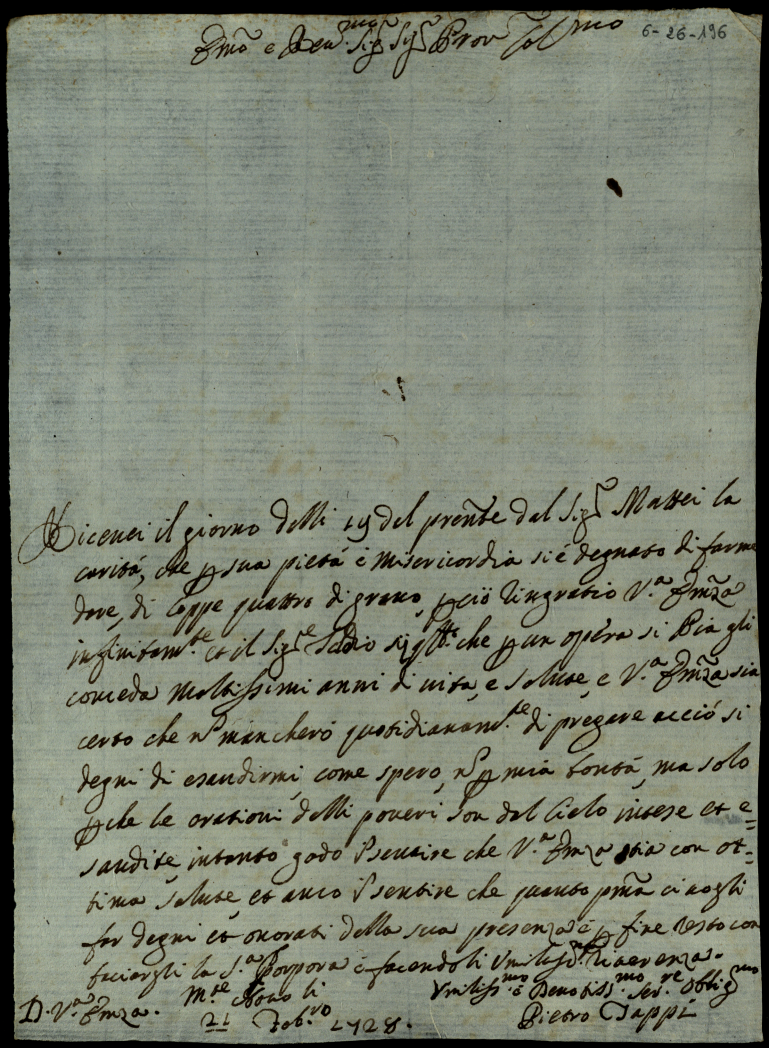 Emo e Reu.mo Sig.r Sig.r Pron Col.mo
6-26-196
Riceuei il giorno delli 19 del prente dal Sig.r Mattei la
carità, che p sua pietà è misericordia si è degnato di farme
dare, di Coppe quattro di grano, p ciò ringratio V.a Emza
infinitam.te et il Sig.re Iddio che p un opera si Pia gli
conceda moltissimi anni di uita, e salute, e V.a Emza sia
certo che nō mancherò quotidianam.te di pregare acciò si
degni di esaudirmi, come spero, nō p mia bontà, ma solo
p che le orationi delli poueri son dal Cielo intese et e=
saudite, intanto godo i sentire che V.a Emza stia con ot=
tima salute, et anco i sentire che quanto pma ci uogli
far degni et onorati della sua presenza è p fine resto con
baciargli la S.a Porpora è facendoli Vmiliss.a riuerenza.
D. V.a Emza.
M.te Nouo li
21 Feb.ro 1728.
Vmiliss.mo è Deuotiss.mo ser.re Oblig.mo
Pietro Tappi